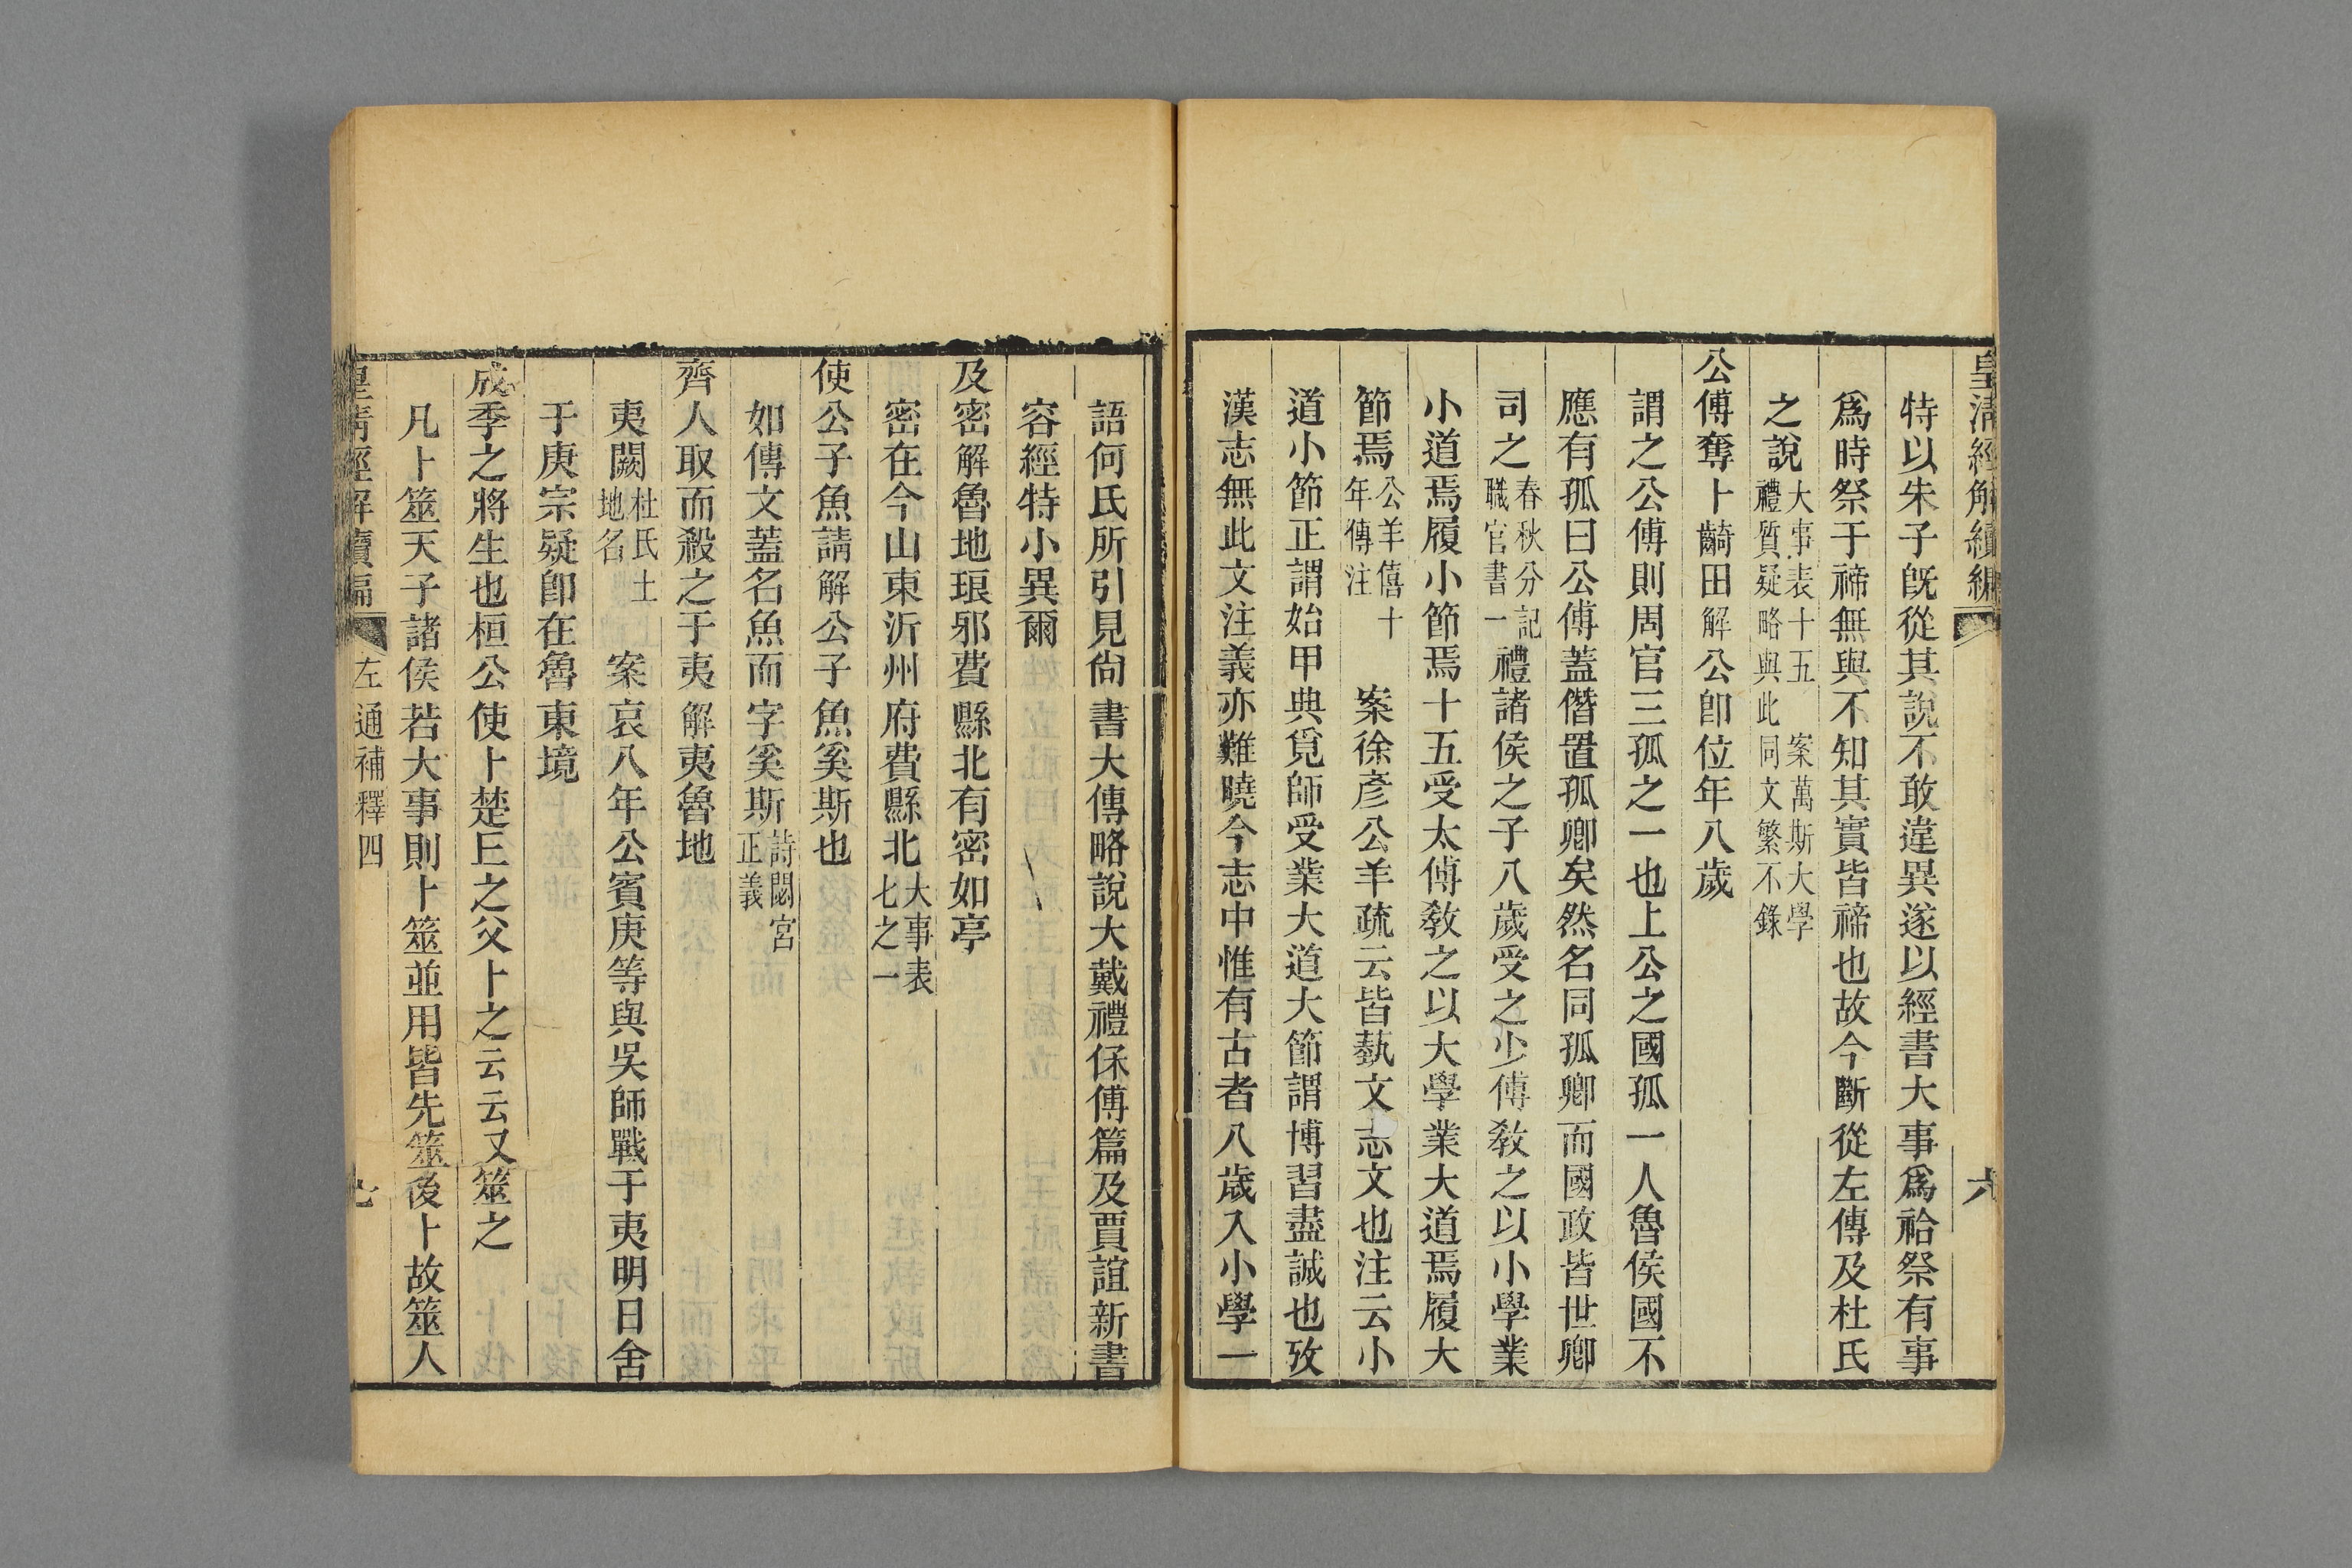 皇清經解續編 六
特以朱子旣從其說不敢違異遂以經書大事爲祫祭有事
爲時祭于禘無與不知其實皆禘也故今斷從左傳及杜氏
之說大事表十五禮質疑略與此同文繁不錄案萬斯大學
公傅奪卜齮田解公卽位年八歲
謂之公傅則周官三孤之一也上公之國孤一人魯侯國不
應有孤曰公傅蓋僭置孤卿矣然名同孤卿而國政皆世卿
司之春秋分記職官書一禮諸侯之子八歲受之少傅敎之以小學業
小道焉履小節焉十五受太傅敎之以大學業大道焉履大
節焉公羊僖十年傳注案徐彥公羊疏云皆藝文志文也注云小
道小節正謂始甲典覓師受業大道大節謂博習盡誠也攷
漢志無此文注義亦難曉今志中惟有古者八歲入小學一
語何氏所引見尙書大傳略說大戴禮保傅篇及賈誼新書
容經特小異爾
及密解魯地琅邪費縣北有密如亭
密在今山東沂州府費縣北大事表七之一
使公子魚請解公子魚奚斯也
如傳文蓋名魚而字奚斯詩閟宮正義
齊人取而殺之于夷解夷魯地
夷闕杜氏土地名案哀八年公賓庚等與吳師戰于夷明日舍
于庚宗疑卽在魯東境
成季之將生也桓公使卜楚丘之父卜之云云又筮之
凡卜筮天子諸侯若大事則卜筮並用皆先筮後卜故筮人
皇清經解續編 左通補釋四 七